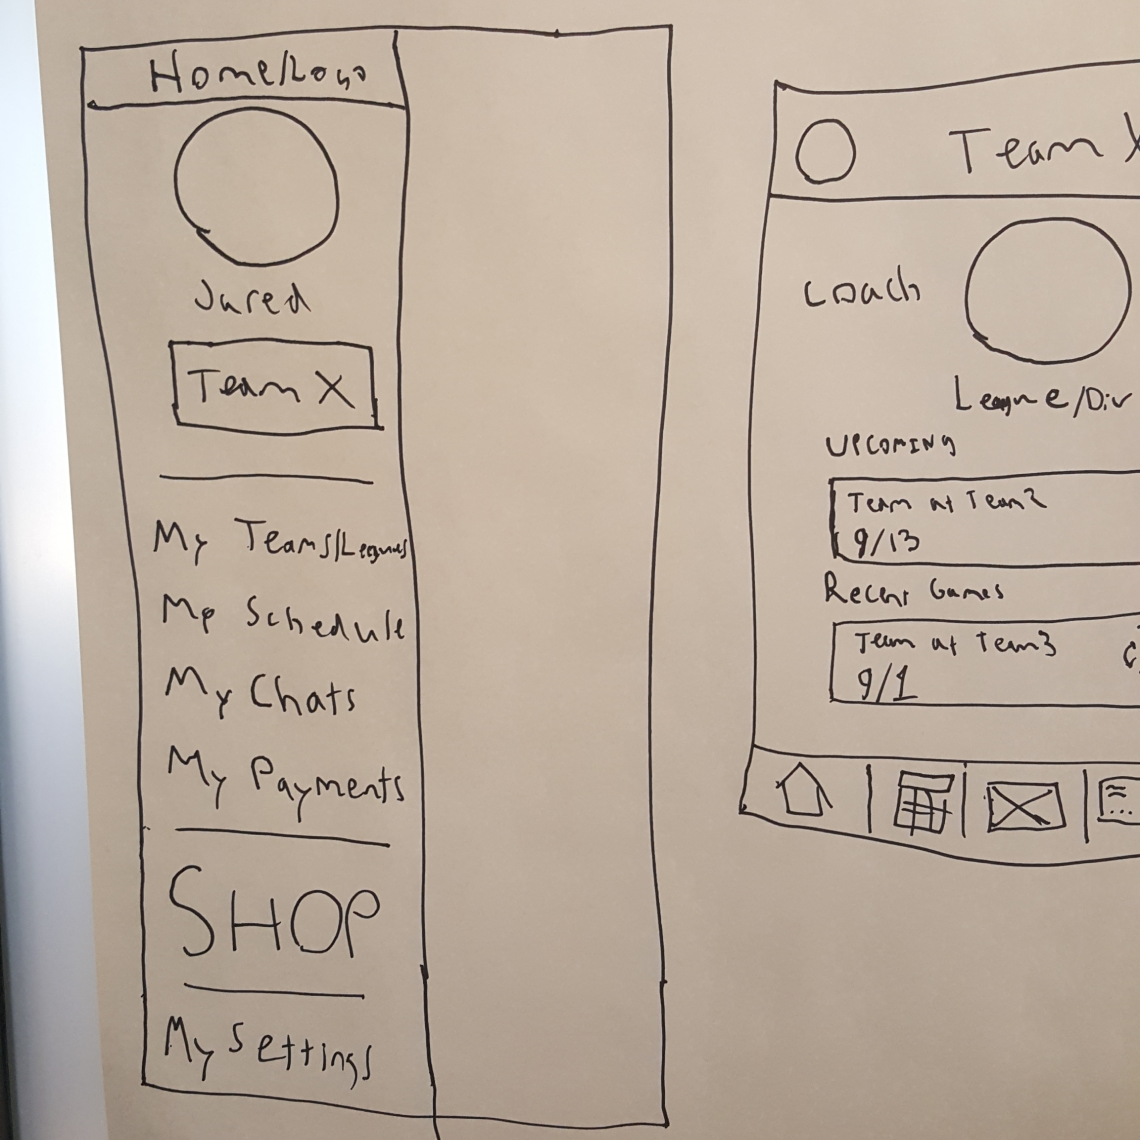 Home/Logo
Jared
Team X
My Teams/Leagues
My Schedule
My Chats
My Payments
SHOP
My Settings
Team X
Coach
League/Div
UPCOMING
Team at Team2
9/13
Recent Games
Team at Team3
9/1